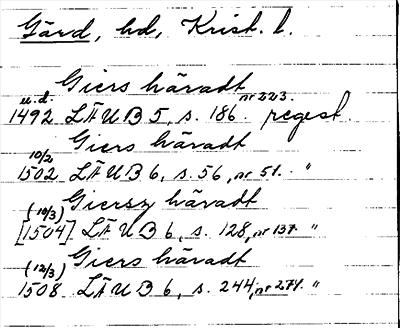 Gärd, hd, Krist. l.
Giers häradt
u.d. 1492 LÄUB 5, s. 186. nr 223. regest.
Giers häradt
10/2 1502 LÄUB 6, s. 56, nr 51. "
Giersz häradt
(10/3) [1504] LÄUB 6, s. 128, nr 137. "
Giers häradt
(12/3) 1508 LÄUB 6, s. 244, nr 274. "